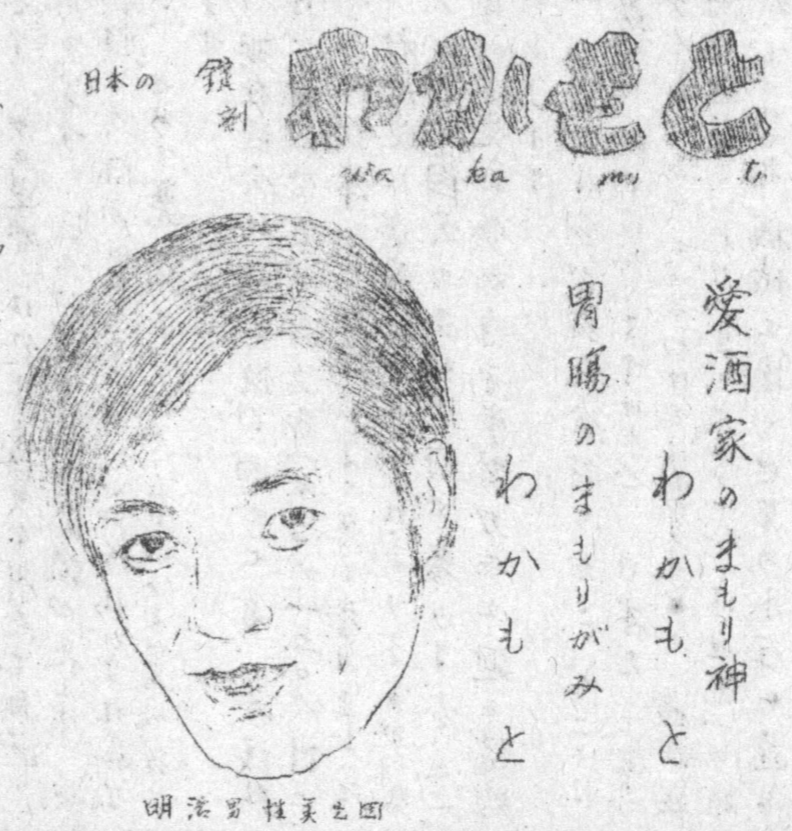 日本の 錠剤 わかもと
wa ka mo to
愛酒家のまもり神
わかもと
胃腸のまもりがみ
わかもと
明治男性美之図